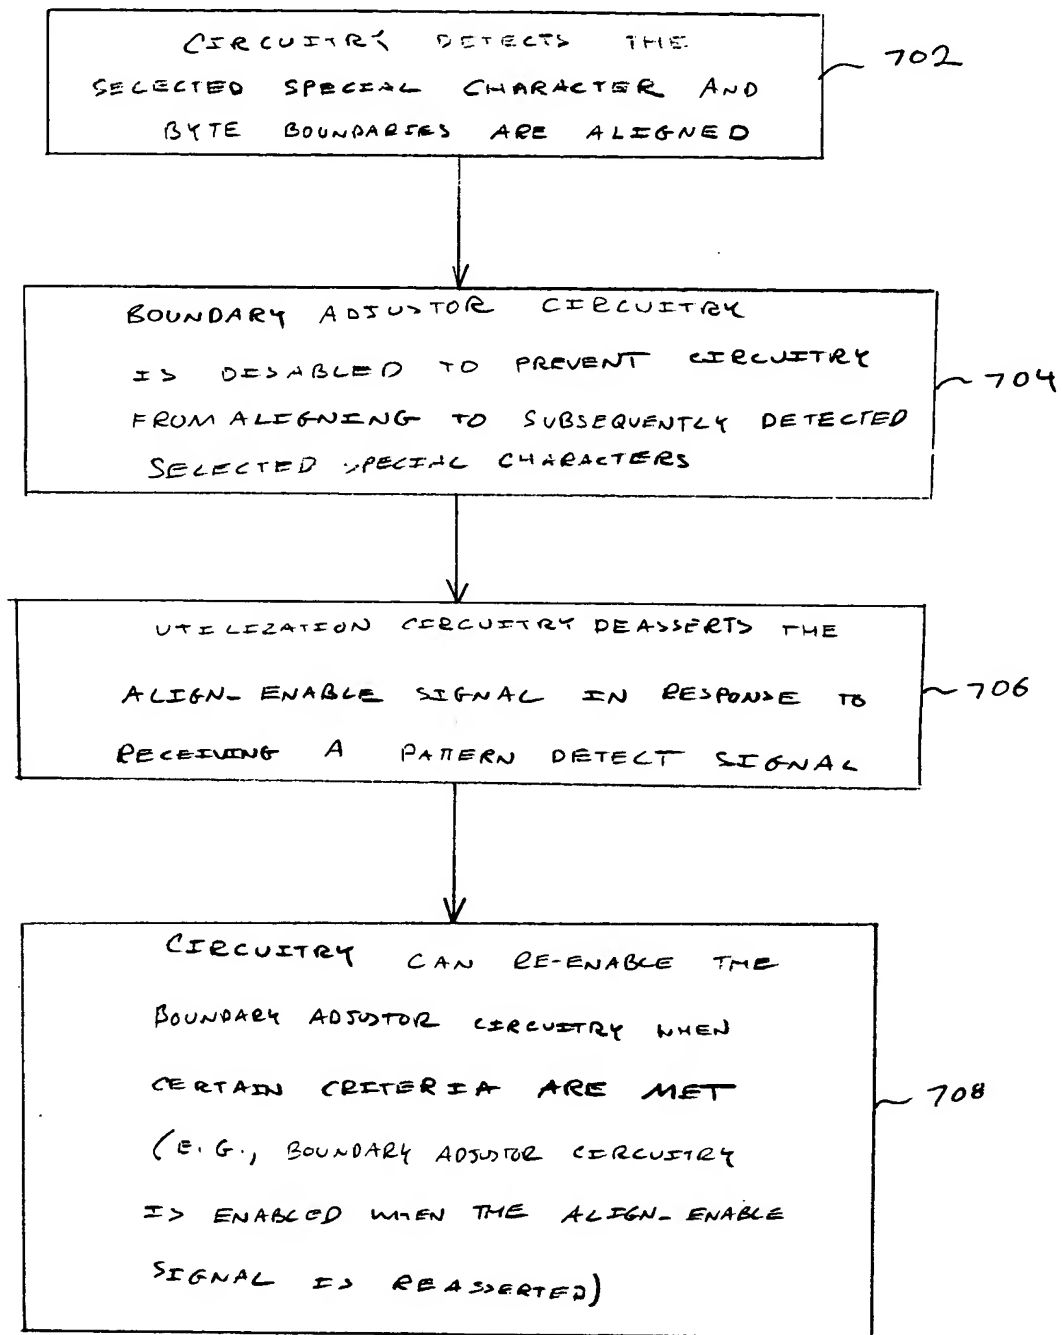 CIRCUITRY DETECTS THE
SELECTED SPECIAL CHARACTER AND
BYTE BOUNDARIES ARE ALIGNED
702
BOUNDARY ADJUSTOR CIRCUITRY
IS DISABLED TO PREVENT CIRCUITRY
FROM ALIGNING TO SUBSEQUENTLY DETECTED
SELECTED SPECIAL CHARACTERS
704
UTILIZATION CIRCUITRY DEASSERTS THE
ALIGN_ENABLE SIGNAL IN RESPONSE TO
RECEIVING A PATTERN DETECT SIGNAL
706
CIRCUITRY CAN RE-ENABLE THE
BOUNDARY ADJUSTOR CIRCUITRY WHEN
CERTAIN CRITERIA ARE MET
(E.G., BOUNDARY ADJUSTOR CIRCUITRY
IS ENABLED WHEN THE ALIGN_ENABLE
SIGNAL IS REASSERTED)
708